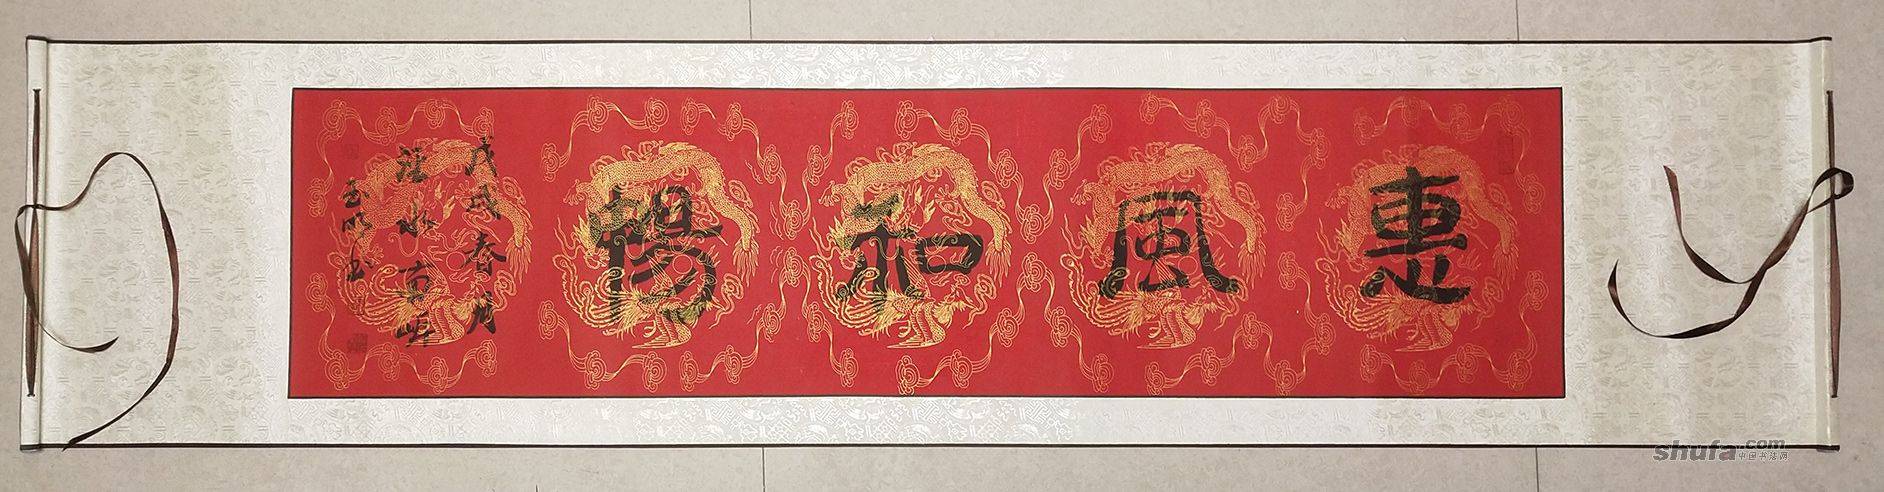 惠風和暢
戊戌春月
玉明书
shufa.com
中国书法网